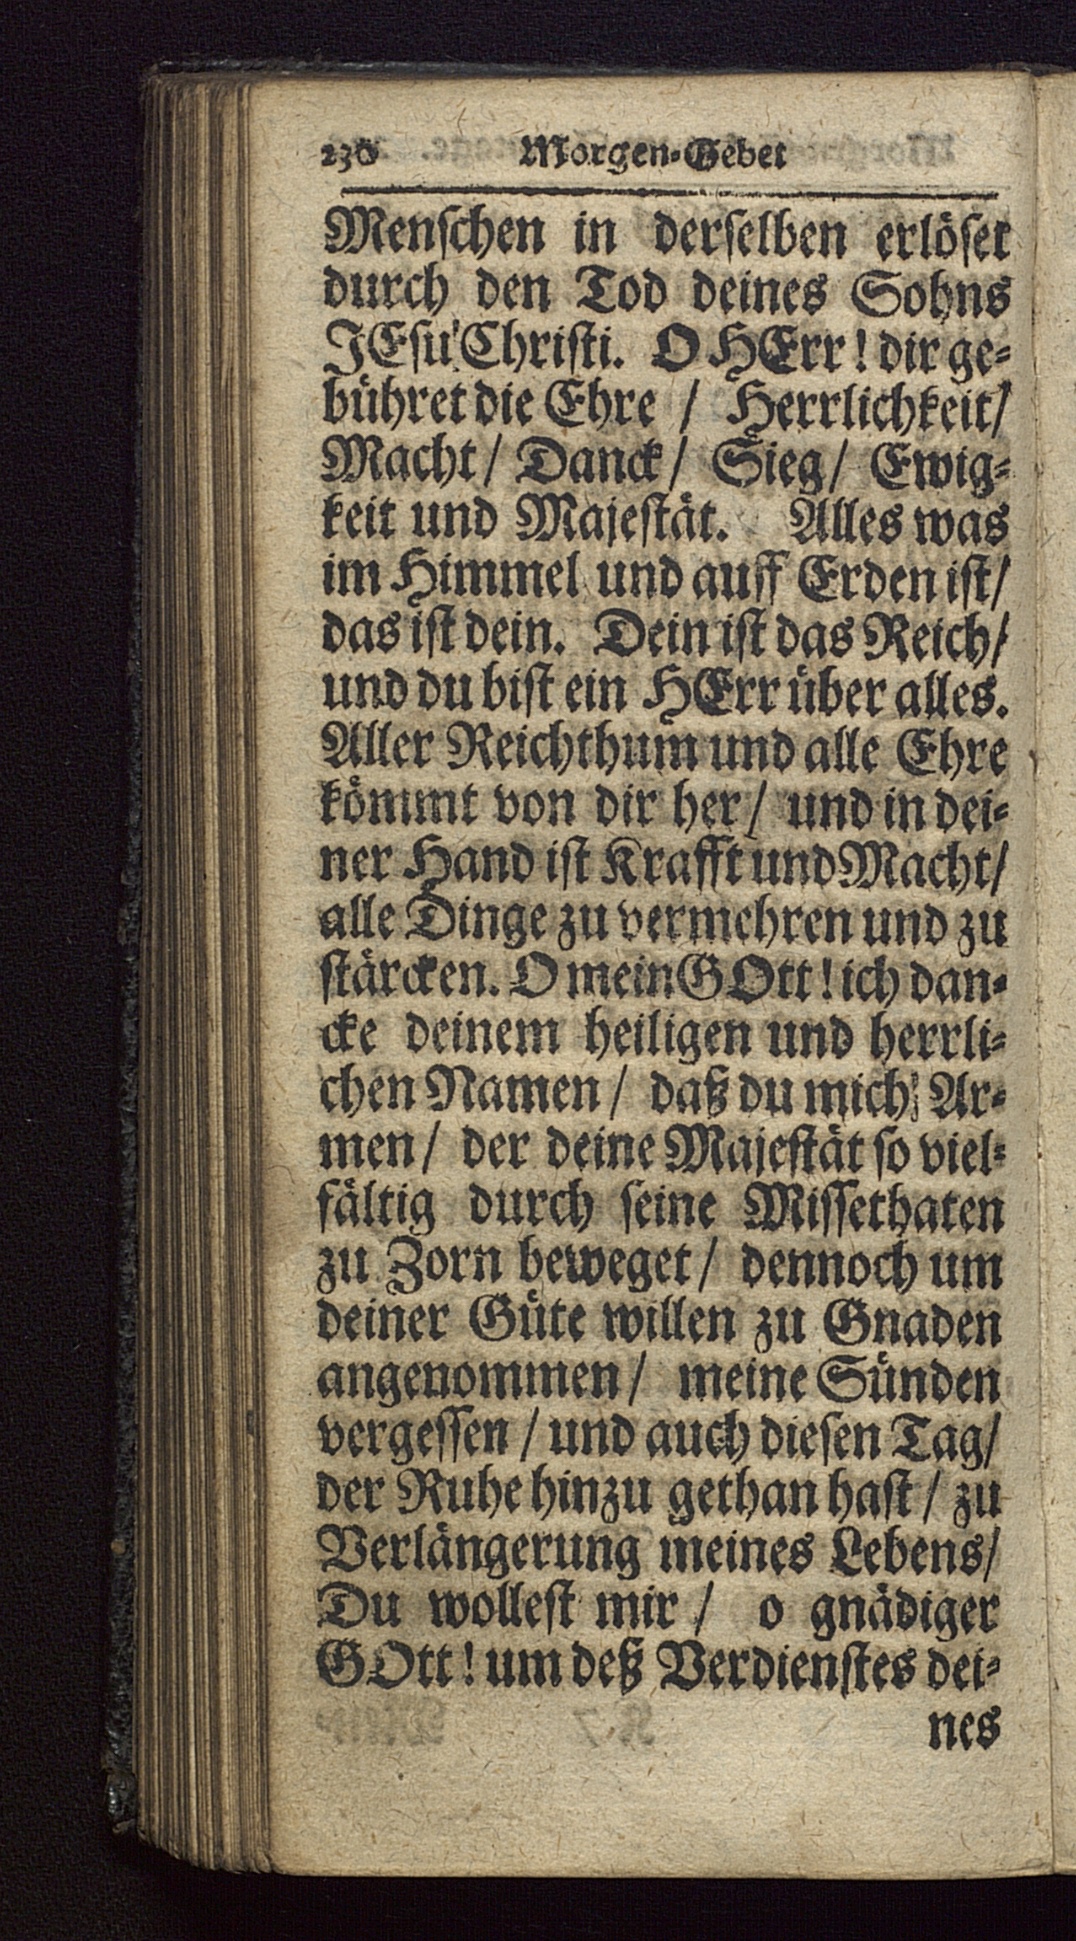 230 Morgen-Gebet
Menschen in derselben erlöset
durch den Tod deines Sohns
JEsu Christi. O HErr! dir ge-
bühret die Ehre / Herrlichkeit/
Macht/ Danck/ Sieg/ Ewig-
keit und Majestät. Alles was
im Himmel und auff Erden ist/
das ist dein. Dein ist das Reich/
und du bist ein HErr über alles.
Aller Reichthum und alle Ehre
kömmt von dir her/ und in dei-
ner Hand ist Krafft und Macht/
alle Dinge zu vermehren und zu
stärcken. O mein GOtt! ich dan-
cke deinem heiligen und herrli-
chen Namen/ daß du mich Ar-
men/ der deine Majestät so viel-
fältig durch seine Missethaten
zu Zorn beweget/ dennoch um
deiner Güte willen zu Gnaden
angenommen/ meine Sünden
vergessen / und auch diesen Tag/
der Ruhe hinzu gethan hast/ zu
Verlängerung meines Lebens/
Du wollest mir / o gnädiger
GOtt! um deß Verdienstes dei-
nes